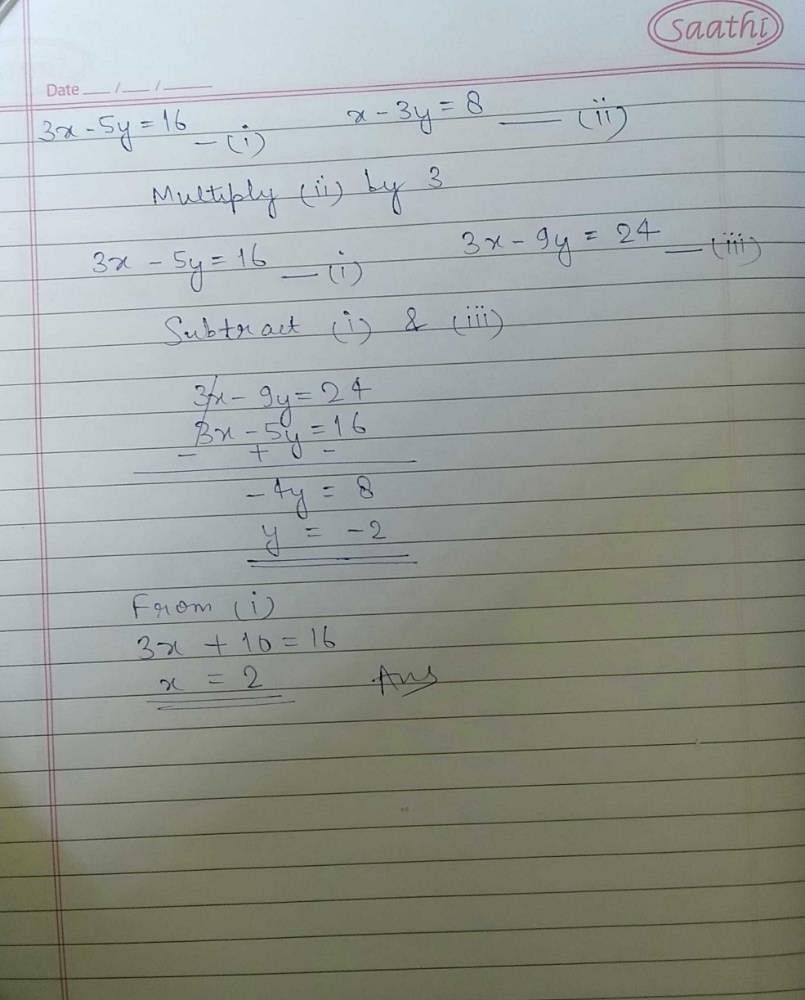 Saathi
Date ___/___/_____
3x - 5y = 16 — (i) x - 3y = 8 — (ii)
Multiply (ii) by 3
3x - 5y = 16 — (i) 3x - 9y = 24 — (iii)
Subtract (i) & (iii)
3x - 9y = 24
3x - 5y = 16
- + -
-4y = 8
y = -2
From (i)
3x + 10 = 16
x = 2 Ans